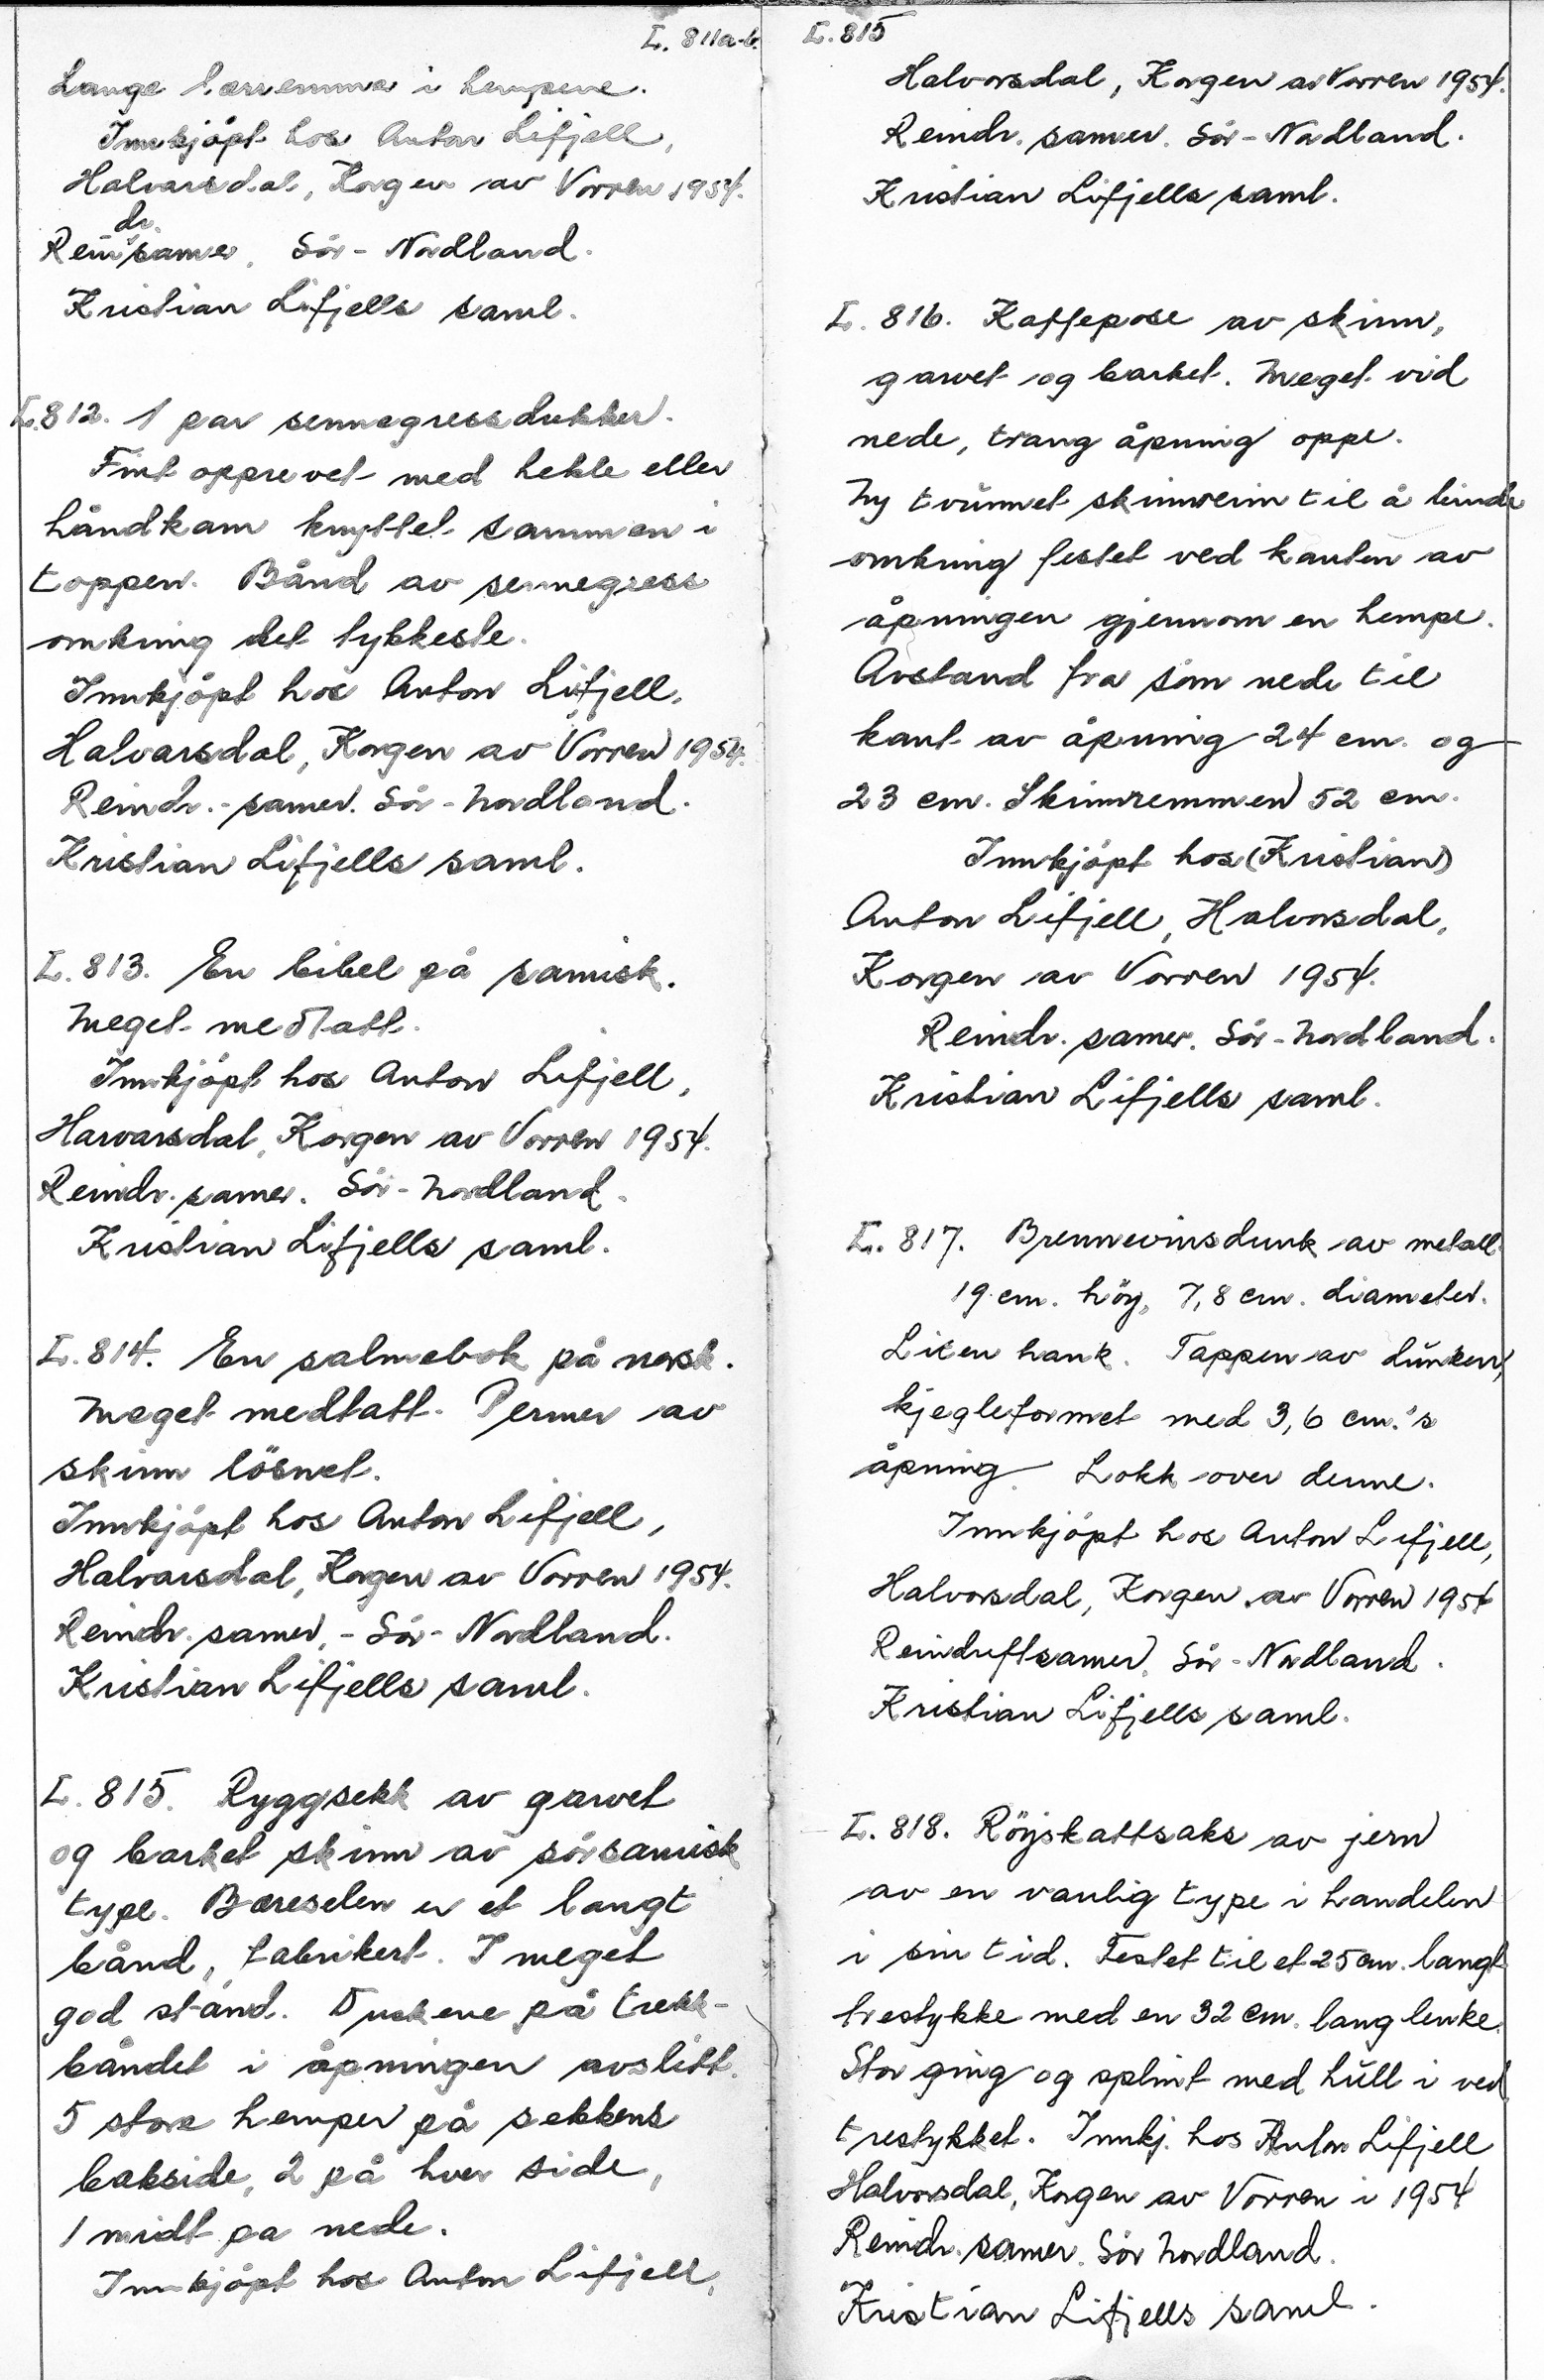 L. 811a-b.
Lange lærremmer i hempene.
Innkjöpt hos Anton Lifjell,
Halvarsdal, Korgen av Vorren 1954.
Reindr.samer. Sör-Nordland.
Kristian Lifjells saml.
L.812. 1 par sennegressdukker.
Fint opprevet med hekle eller
håndkam knyttet sammen i
toppen. Bånd av sennegress
omkring det tykkeste.
Innkjöpt hos Anton Lifjell,
Halvarsdal, Korgen av Vorren 1954.
Reindr.-samer. Sör-Nordland.
Kristian Lifjells saml.
L. 813. En bibel på samisk.
Meget medtatt.
Innkjöpt hos Anton Lifjell,
Harvarsdal, Korgen av Vorren 1954.
Reindr. samer. Sör-Nordland.
Kristian Lifjells saml.
L. 814. En salmebok på norsk.
Meget medtatt. Permer av
skinn lösnet.
Innkjöpt hos Anton Lifjell,
Halvarsdal, Korgen av Vorren 1954.
Reindr. samer, - Sör-Nordland.
Kristian Lifjells saml.
L. 815. Ryggsekk av garvet
og barket skinn av sörsamisk
type. Bæreselen er et langt
bånd, fabrikert. I meget
god stand. Duskene på trekk-
båndet i åpningen avslitt.
5 store hemper på sekkens
bakside, 2 på hver side,
1 midt pa nede.
Innkjöpt hos Anton Lifjell,
L. 815
Halvorsdal, Korgen av Vorren 1954.
Reindr. samer. Sör-Nordland.
Kristian Lifjells saml.
L. 816. Kaffepose av skinn,
garvet og barket. Meget vid
nede, trang åpning oppe.
Ny tvunnet skinnreim til å binde
omkring festet ved kanten av
åpningen gjennom en hempe.
Avstand fra söm nede til
kant av åpning 24 cm. og
23 cm. Skinnremmen 52 cm.
Innkjöpt hos (Kristian)
Anton Lifjell, Halvorsdal,
Korgen av Vorren 1954.
Reindr. samer. Sör-Nordland.
Kristian Lifjells saml.
L. 817. Brennevinsdunk av metall.
19 cm. höy, 7,8 cm. diameter.
Liten hank. Tappen av dunken,
kjegleformet med 3,6 cm.'s
åpning. Lokk over denne.
Innkjöpt hos Anton Lifjell,
Halvorsdal, Korgen av Vorren 1954
Reindriftsamer. Sör-Nordland.
Kristian Lifjells saml.
L. 818. Röyskattsaks av jern
av en vanlig type i handelen
i sin tid. Festet til et 25 cm. langt
trestykke med en 32 cm. lang lenke.
Stor ging og splint med hull i ved
trestykket. Innkj. hos Anton Lifjell
Halvorsdal, Korgen av Vorren i 1954
Reindr. samer. Sör Nordland.
Kristian Lifjells saml.